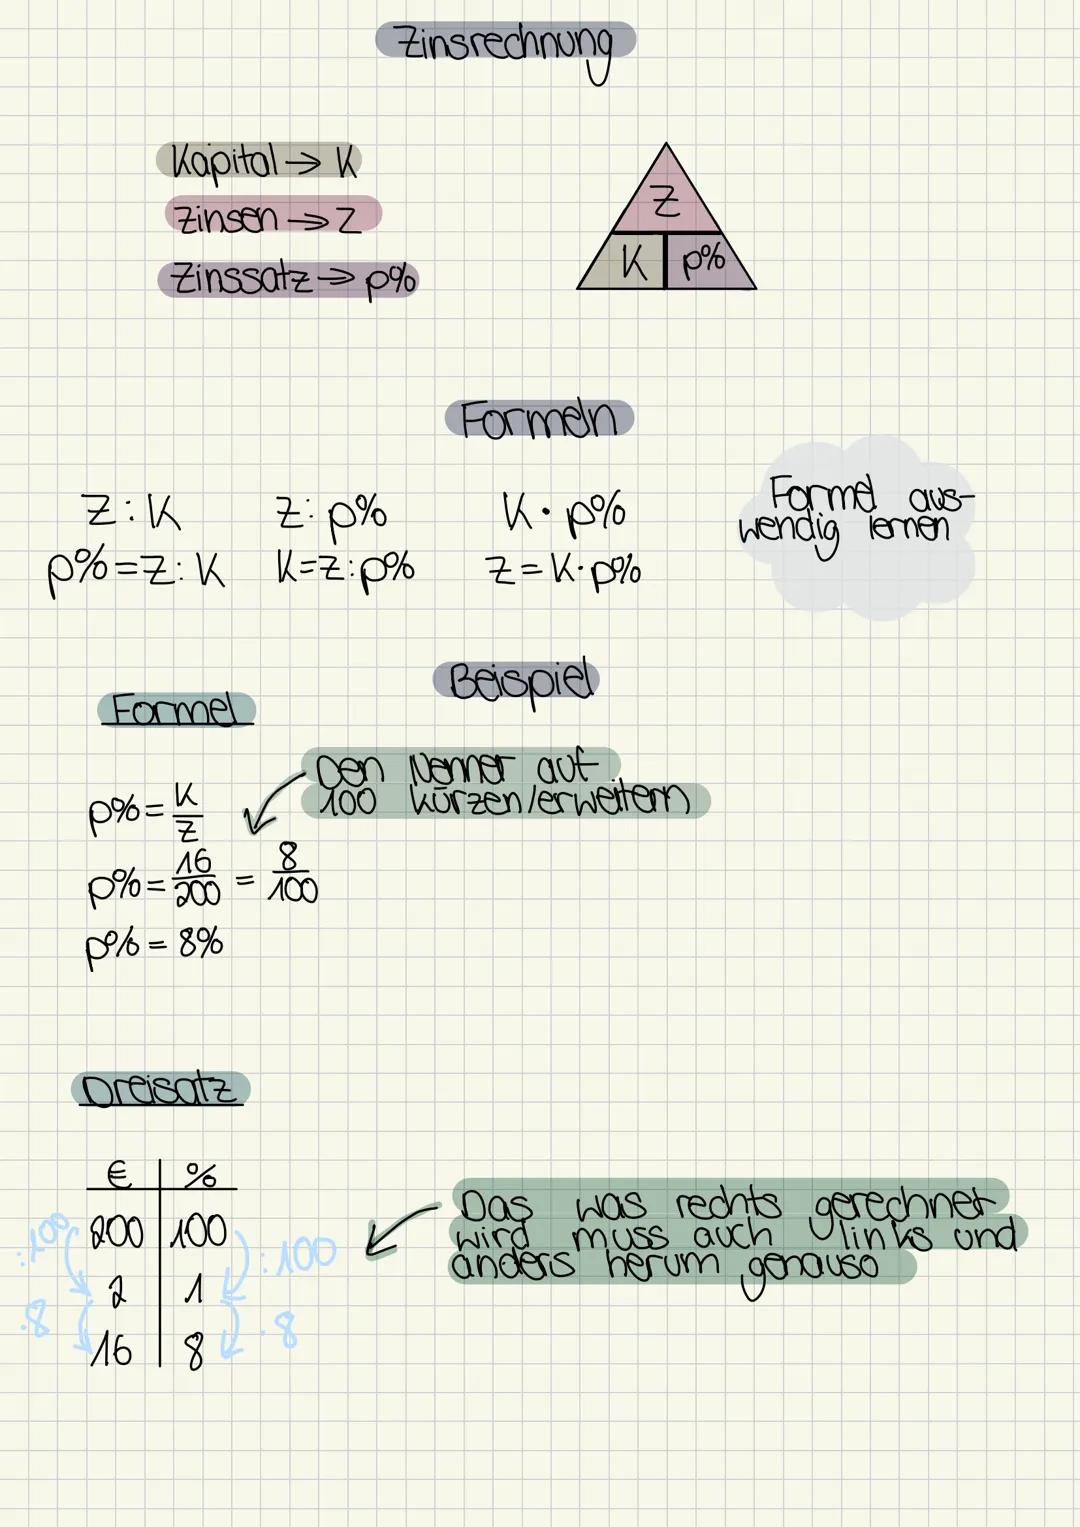 Zinsrechnung
Kapital → K
Zinsen → Z
Zinssatz → p%
Z
K p%
Formeln
Z : K Z : p% K · p%
p% = Z : K K = Z : p% Z = K · p%
Formel aus-
wendig lernen
Beispiel
Formel
Den Nenner auf
100 kürzen/erweitern
p% = K/Z
p% = 16/200 = 8/100
p% = 8%
Dreisatz
€ %
:100 200 100 :100
2 1
·8 16 8 ·8
Das was rechts gerechnet
wird muss auch links und
anders herum genauso